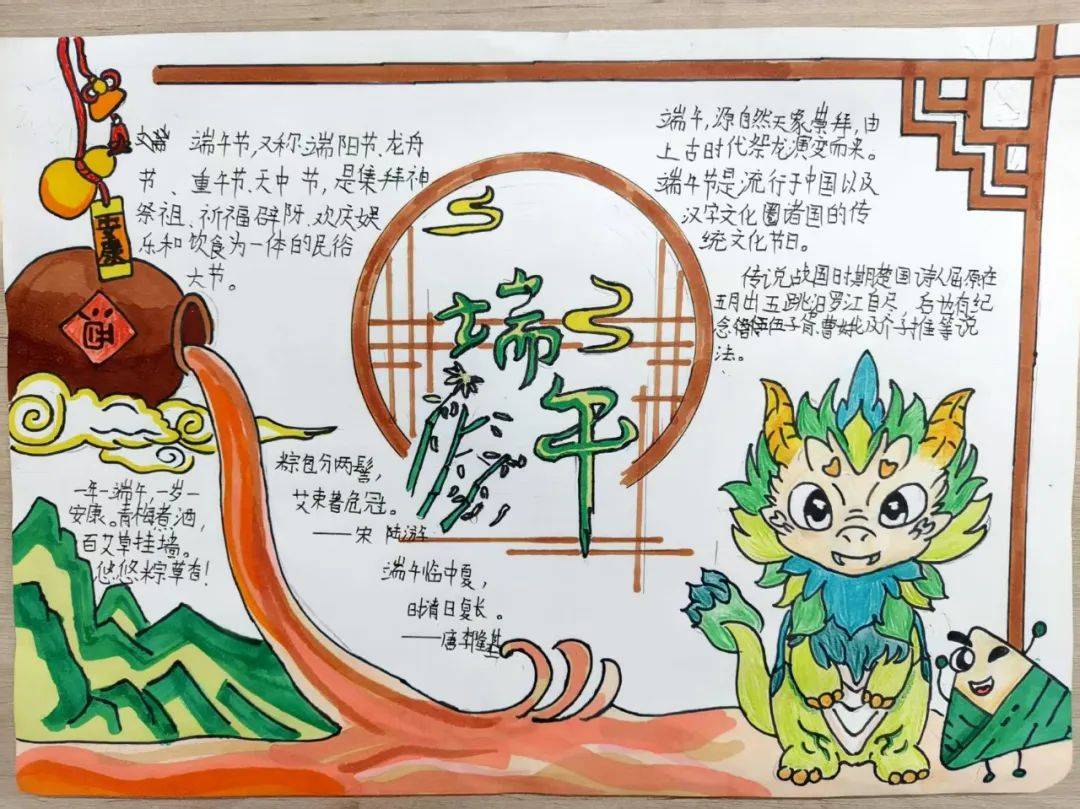 安康
端午节,又称端阳节、龙舟
节、重午节、天中节,是集拜神
祭祖、祈福辟邪、欢庆娱
乐和饮食为一体的民俗
大节。
端午,源自然天象崇拜,由
上古时代祭龙演变而来。
端午节是流行于中国以及
汉字文化圈诸国的传
统文化节日。
传说战国时期楚国诗人屈原在
五月出五跳汨罗江自尽,后也有纪
念伍子胥、曹娥及介子推等说
法。
端
午
粽包分两髻,
艾束著危冠。
——宋 陆游
端午临中夏,
时清日复长。
——唐 李隆基
一年一端午,一岁一
安康。青梅煮酒,
百艾草挂墙。
悠悠粽草香!